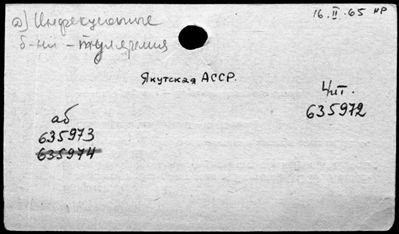 16.II.65 НР
а) Инфекционные
б-ни - туляремия
Якутская АССР.
Чит.
635972
аб
635973
635974